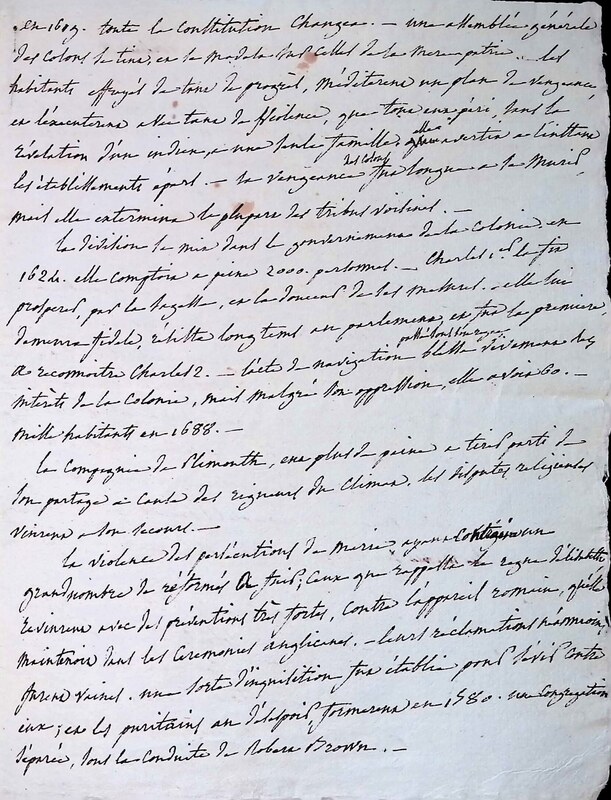 en 1609. toute la Constitution Changea. — une assemblée générale
des Colons se tint, en la modela sur celles de la mere patrie. — les
habitants effrayés de tant de progrès, méditerent un plan de vengeance
en l'executerent avec tant de silence, que tout eut péri, sans la
révélation d'un indien, a une seule famille. elle avertit a l'instant
les établissements épars. — la vengeance des Colons fut longue a la Murir
mais elle extermina la plupart des tribus voisines. —
la division se mit dans le gouvernement de la Colonie. en
1624. elle comptoit a peine 2000. personnes. — Charles 1.er la fit
prosperer, par la sagesse, et la douceur de ses mesures. — elle lui
demeura fidele, résista longtems au parlement, et fut la premiere
a reconnoitre Charles 2. — l'acte de navigation blessa vivement les
interêts de la Colonie, mais malgré son oppression, elle avoit 60. —
mille habitants en 1688. —
la Compagnie de Plimouth, eut plus de peine a tirer parti de
son partage a Cause des rigueurs du Climat. les disputes religieuses
vinrent a son secours. —
la violence des persécutions de Marie, ayant un
grand nombre de réformés a fuir; Ceux que rappella le regne d'élisabeth
revinrent avec des préventions très fortes, Contre l'appareil romain, qu'elle
maintenoit dans les Ceremonies anglicanes. — leurs réclamations néanmoins
furent vaines. une sorte d'inquisition fut établie pour sévir Contre
eux; et les puritains au désespoir, formerent en 1580. une Congrégation
séparée, sous la Conduite de Robert Brown. —